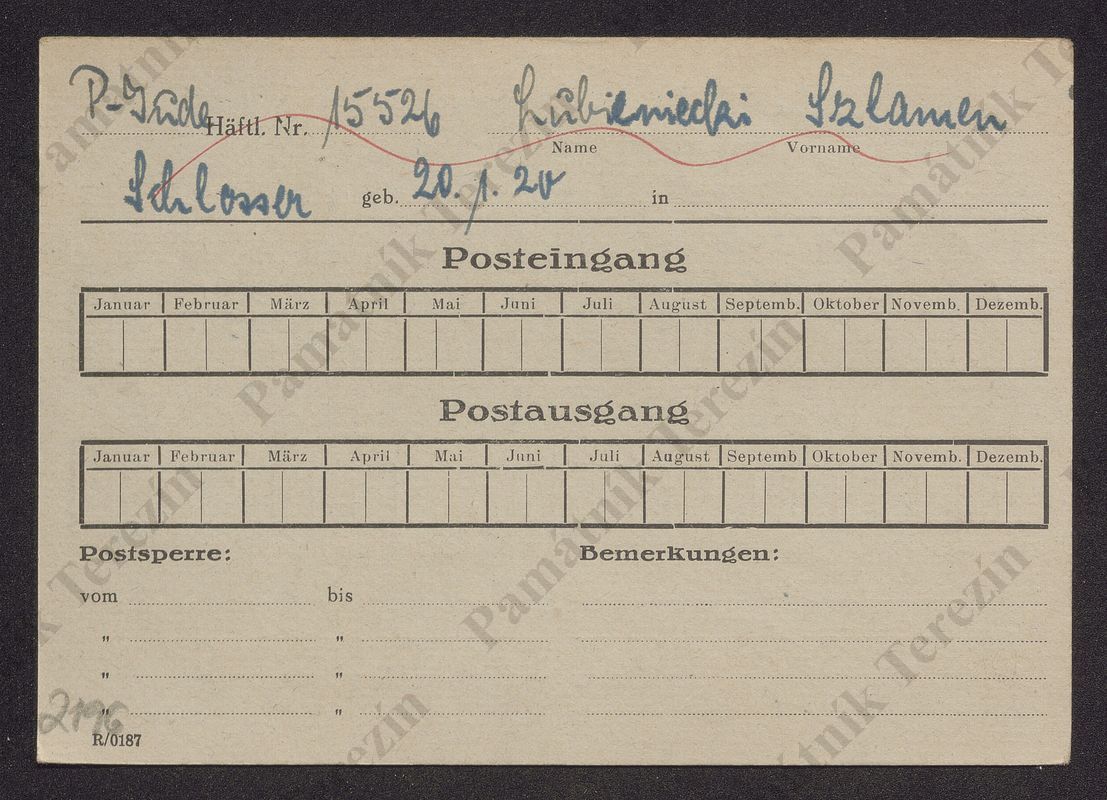 P-Jude Häftl. Nr. 15526 Lubieniecki Szlamen
Name Vorname
Schlosser geb. 20./1. 20 in
Posteingang
Januar Februar März April Mai Juni Juli August Septemb. Oktober Novemb. Dezemb.
Postausgang
Januar Februar März April Mai Juni Juli August Septemb Oktober Novemb. Dezemb.
Postsperre: Bemerkungen:
vom bis
" "
" "
" "
2196
R/0187
Památník Terezín